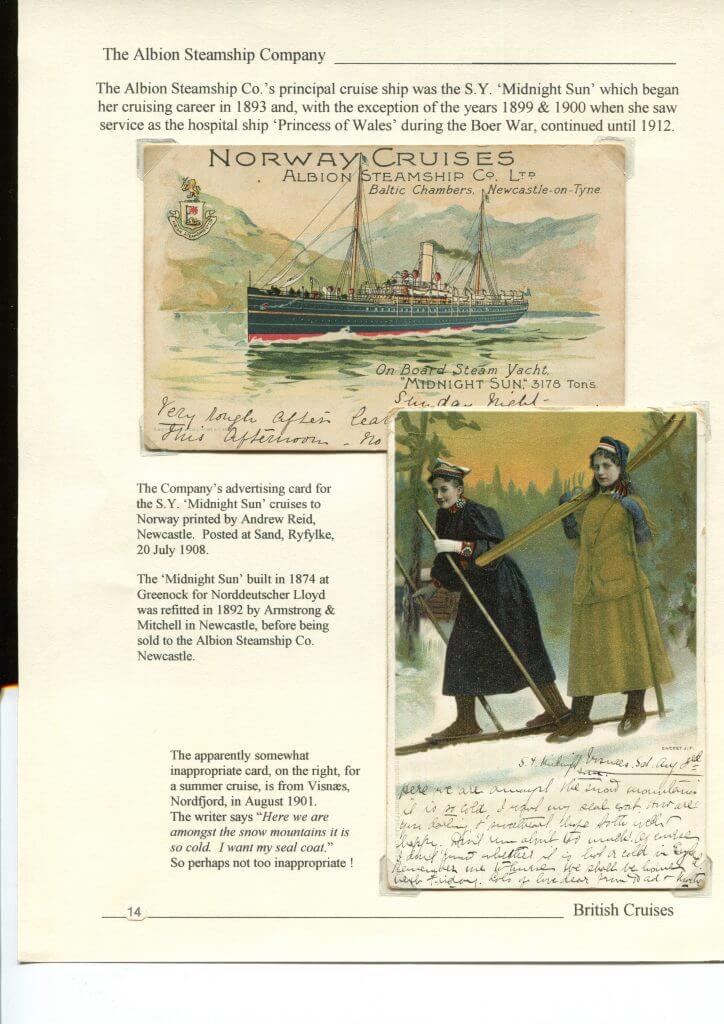 The Albion Steamship Company
The Albion Steamship Co.'s principal cruise ship was the S.Y. 'Midnight Sun' which began
her cruising career in 1893 and, with the exception of the years 1899 & 1900 when she saw
service as the hospital ship 'Princess of Wales' during the Boer War, continued until 1912.
NORWAY CRUISES
ALBION STEAMSHIP CO. LTD
Baltic Chambers, Newcastle-on-Tyne
On Board Steam Yacht,
"MIDNIGHT SUN," 3178 Tons
Sunday Night -
Very rough after
this afternoon - No
The Company's advertising card for
the S.Y. 'Midnight Sun' cruises to
Norway printed by Andrew Reid,
Newcastle. Posted at Sand, Ryfylke,
20 July 1908.
The 'Midnight Sun' built in 1874 at
Greenock for Norddeutscher Lloyd
was refitted in 1892 by Armstrong &
Mitchell in Newcastle, before being
sold to the Albion Steamship Co.
Newcastle.
The apparently somewhat
inappropriate card, on the right, for
a summer cruise, is from Visnæs,
Nordfjord, in August 1901.
The writer says "Here we are
amongst the snow mountains it is
so cold. I want my seal coat."
So perhaps not too inappropriate !
S.Y. Midnight Sun Visnaes. Sat. Aug 3rd
Here we are amongst the snow mountains
it is so cold. I want my seal coat. How are
you darling, & sweetheart I hope both well &
happy. Don't run about too much. Of course
I don't know whether it is hot or cold in
Remember me to nurse. We shall be home
next Friday. Lots of love dear from Dad &
14
British Cruises